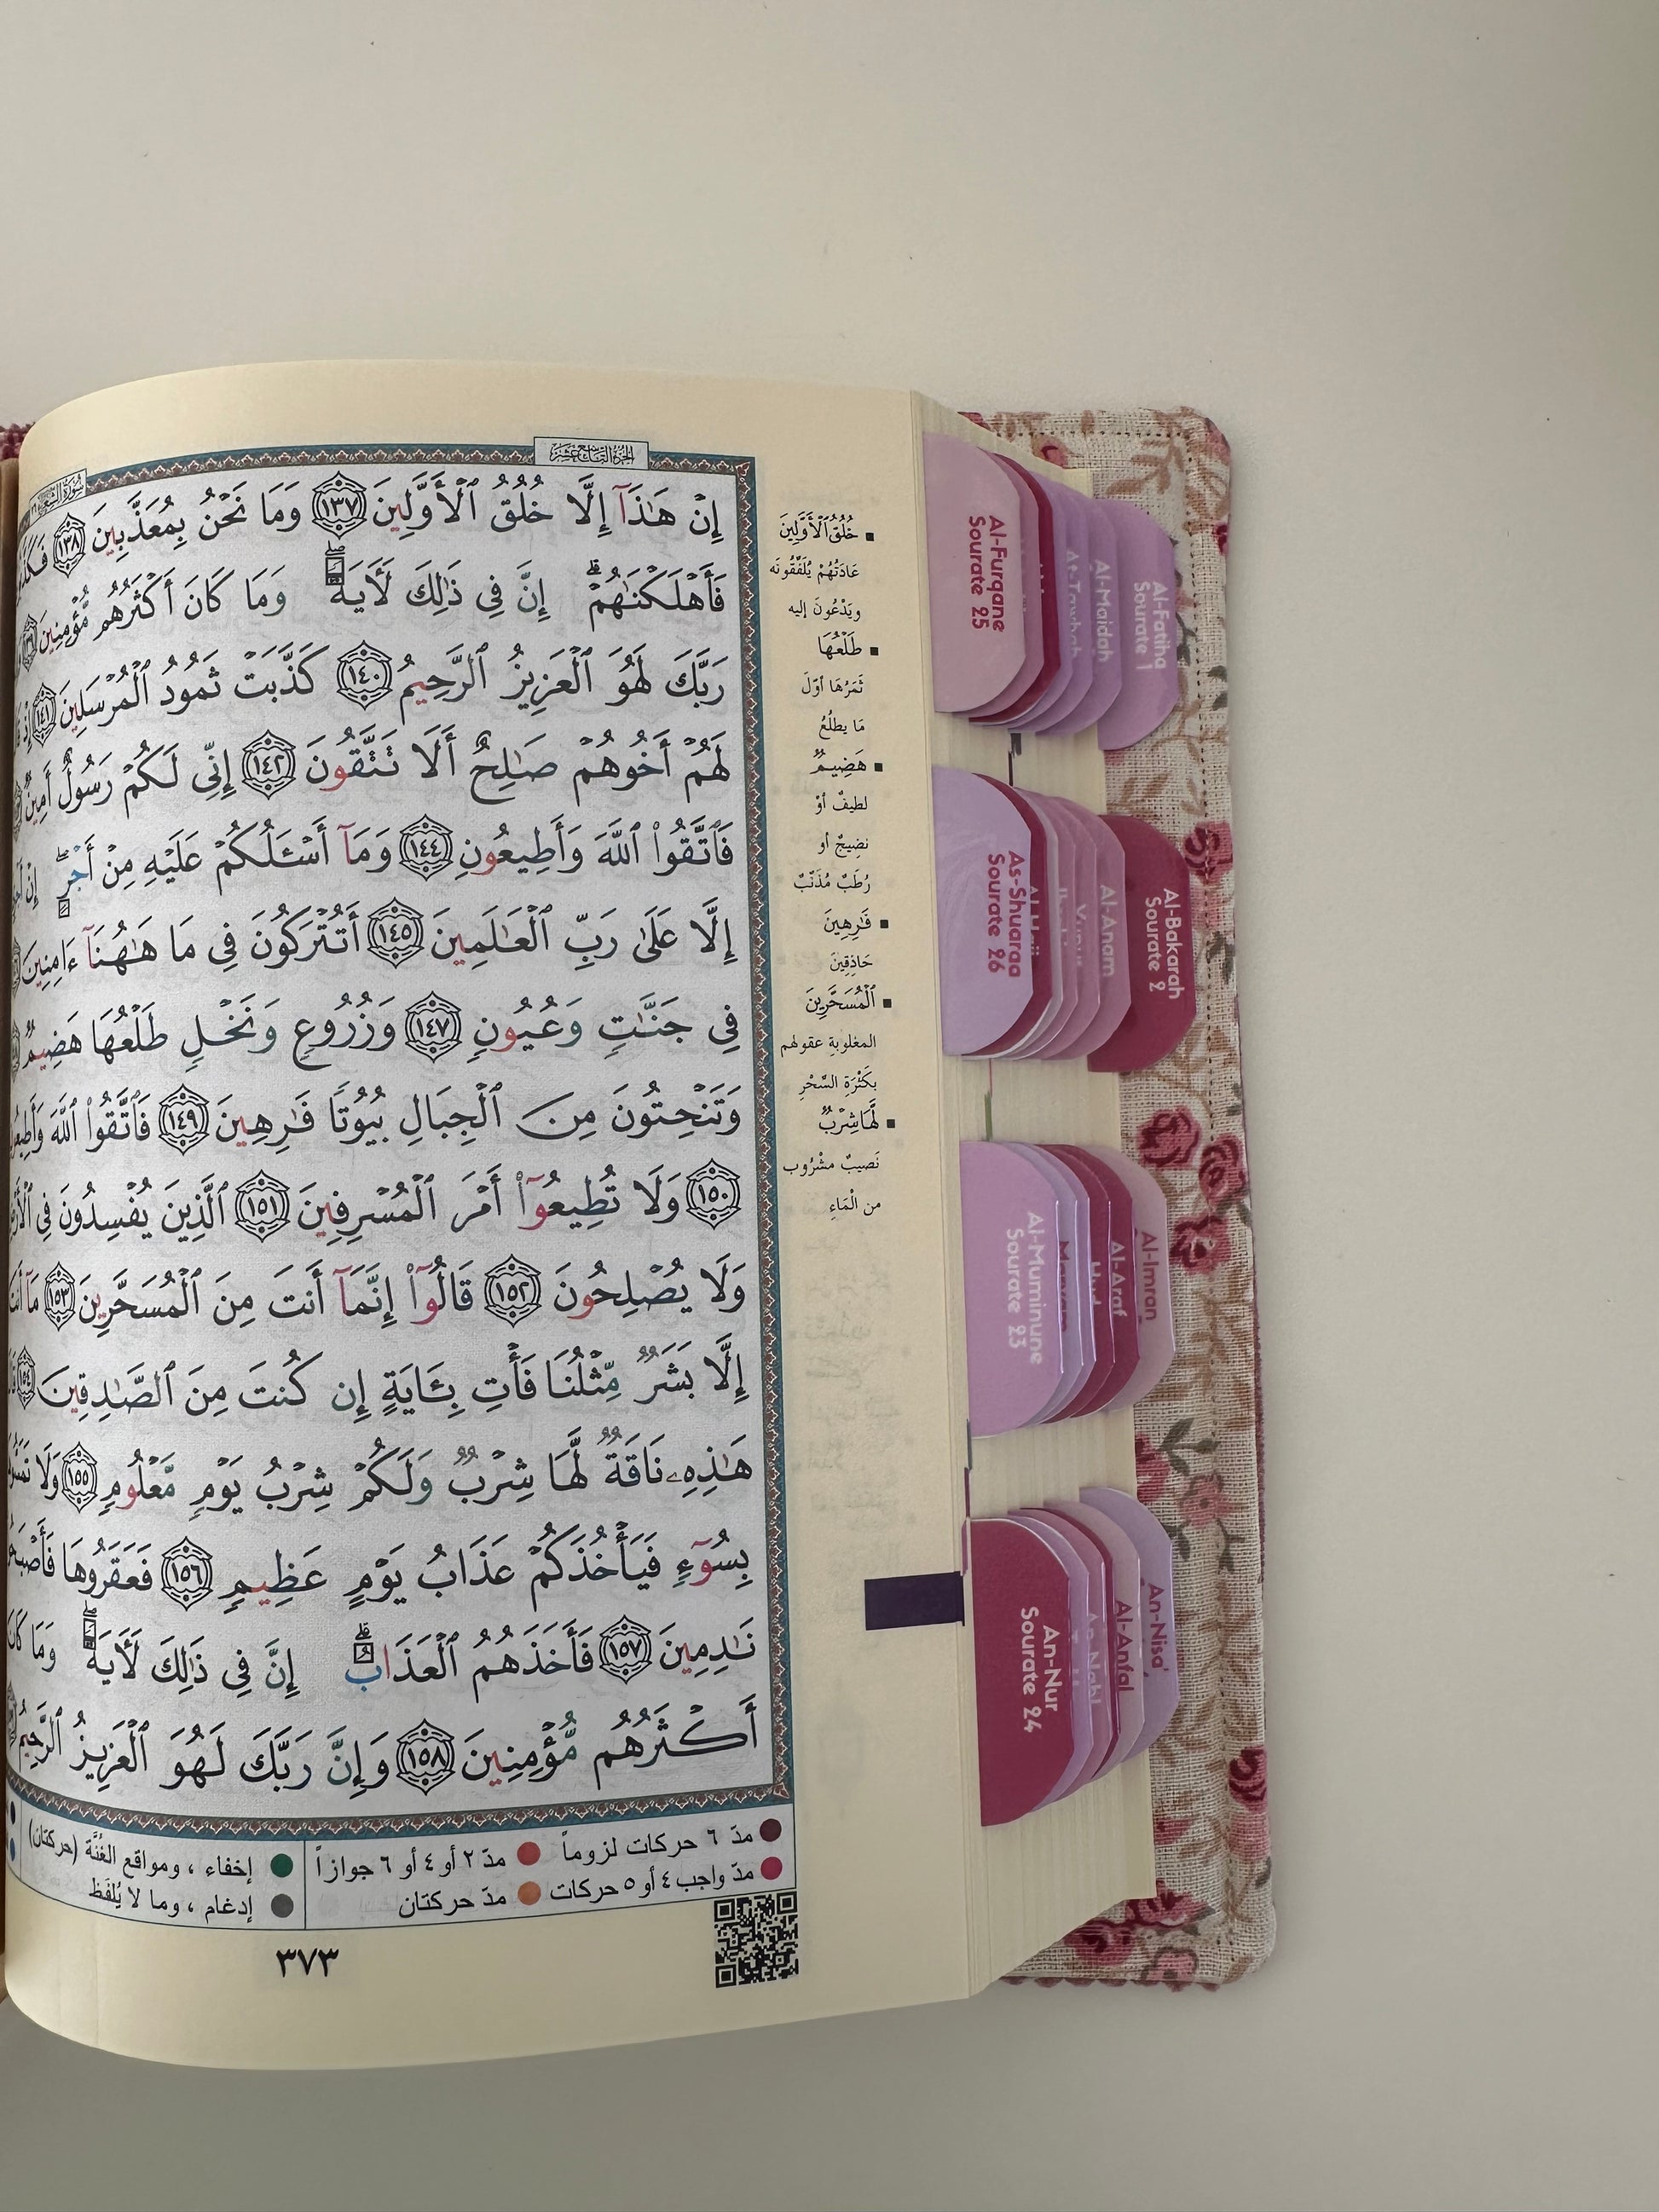 الجزء التاسع عشر
إِنْ هَٰذَآ إِلَّا خُلُقُ ٱلْأَوَّلِينَ ١٣٧ وَمَا نَحْنُ بِمُعَذَّبِينَ ١٣٨
فَأَهْلَكْنَٰهُمْ ۗ إِنَّ فِى ذَٰلِكَ لَءَايَةً ۖ وَمَا كَانَ أَكْثَرُهُم مُّؤْمِنِينَ ١٣٩
رَبَّكَ لَهُوَ ٱلْعَزِيزُ ٱلرَّحِيمُ ١٤٠ كَذَّبَتْ ثَمُودُ ٱلْمُرْسَلِينَ ١٤١
لَهُمْ أَخُوهُمْ صَٰلِحٌ أَلَا تَتَّقُونَ ١٤٢ إِنِّى لَكُمْ رَسُولٌ أَمِينٌ
فَٱتَّقُوا۟ ٱللَّهَ وَأَطِيعُونِ ١٤٤ وَمَآ أَسْـَٔلُكُمْ عَلَيْهِ مِنْ أَجْرٍ ۖ إِنْ
إِلَّا عَلَىٰ رَبِّ ٱلْعَٰلَمِينَ ١٤٥ أَتُتْرَكُونَ فِى مَا هَٰهُنَآ ءَامِنِينَ
فِى جَنَّٰتٍ وَعُيُونٍ ١٤٧ وَزُرُوعٍ وَنَخْلٍ طَلْعُهَا هَضِيمٌ
وَتَنْحِتُونَ مِنَ ٱلْجِبَالِ بُيُوتًا فَٰرِهِينَ ١٤٩ فَٱتَّقُوا۟ ٱللَّهَ
١٥٠ وَلَا تُطِيعُوٓا۟ أَمْرَ ٱلْمُسْرِفِينَ ١٥١ ٱلَّذِينَ يُفْسِدُونَ فِى
وَلَا يُصْلِحُونَ ١٥٢ قَالُوٓا۟ إِنَّمَآ أَنتَ مِنَ ٱلْمُسَحَّرِينَ ١٥٣ مَآ
إِلَّا بَشَرٌ مِّثْلُنَا فَأْتِ بِـَٔايَةٍ إِن كُنتَ مِنَ ٱلصَّٰدِقِينَ ١٥٤
هَٰذِهِۦ نَاقَةٌ لَّهَا شِرْبٌ وَلَكُمْ شِرْبُ يَوْمٍ مَّعْلُومٍ ١٥٥ وَلَا
بِسُوٓءٍ فَيَأْخُذَكُمْ عَذَابُ يَوْمٍ عَظِيمٍ ١٥٦ فَعَقَرُوهَا
نَٰدِمِينَ ١٥٧ فَأَخَذَهُمُ ٱلْعَذَابُ ۗ إِنَّ فِى ذَٰلِكَ لَءَايَةً ۖ وَمَا
أَكْثَرُهُم مُّؤْمِنِينَ ١٥٨ وَإِنَّ رَبَّكَ لَهُوَ ٱلْعَزِيزُ ٱلرَّحِيمُ
خُلُقُ ٱلْأَوَّلِينَ
عَادَتُهُمْ يُلَفِّقُونَه
ويَدْعُونَ إليه
طَلْعُهَا
ثَمَرُهَا أوّلَ
مَا يطلُعُ
هَضِيمٌ
لطيفٌ أوْ
نضِيجٌ أو
رُطَبٌ مُذَنّبٌ
فَٰرِهِينَ
حَاذِقِينَ
ٱلْمُسَحَّرِينَ
المغلوبةِ عقولهم
بكَثْرَةِ السِّحْرِ
لَّهَا شِرْبٌ
نَصيبٌ مشْرُوب
من الْمَاءِ
مدّ ٦ حركات لزوماً
مدّ ٢ أو ٤ أو ٦ جوازاً
إخفاء ، ومواقع الغُنَّة (حركتان)
مدّ واجب ٤ أو ٥ حركات
مدّ حركتان
إدغام ، وما لا يُلفَظ
٣٧٣
Al-Furqane
Sourate 25
At-Tawbah
Al-Maidah
Al-Fatiha
Sourate 1
As-Shuaraa
Sourate 26
Al-Anam
Al-Bakarah
Sourate 2
Al-Muminune
Sourate 23
Maryam
Hud
Al-Araf
Al-Imran
An-Nur
Sourate 24
An-Nahl
Al-Anfal
An-Nisa'